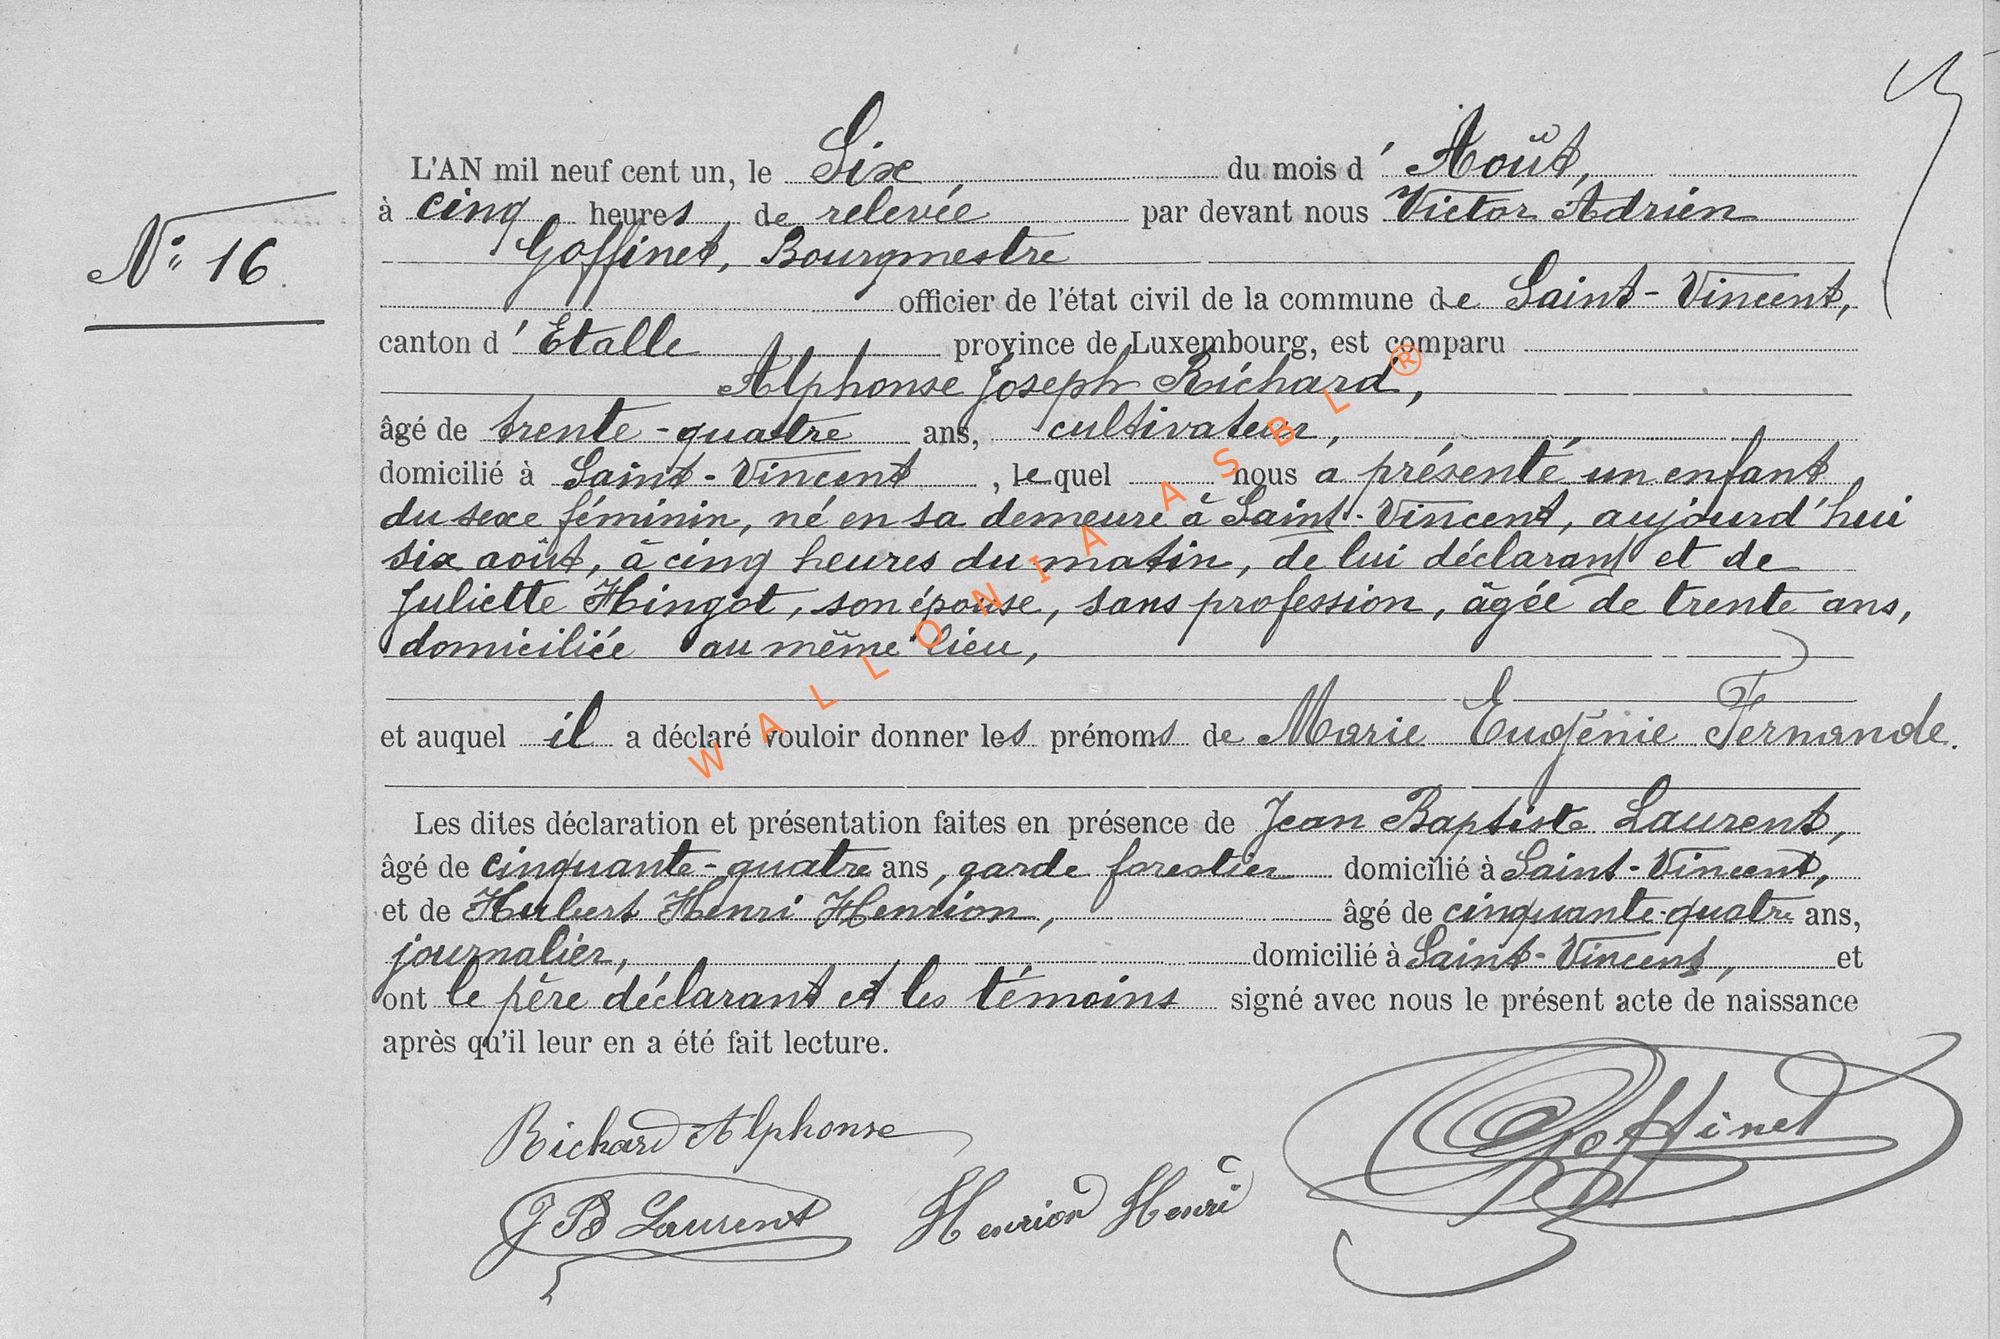 N° 16
L'AN mil neuf cent un, le Six du mois d' Août,
à cinq heures de relevée par devant nous Victor Adrien
Goffinet, Bourgmestre
officier de l'état civil de la commune de Saint-Vincent,
canton d' Etalle province de Luxembourg, est comparu
Alphonse Joseph Richard,
âgé de trente-quatre ans, cultivateur,
domicilié à Saint-Vincent, lequel nous a présenté un enfant
du sexe féminin, né en sa demeure à Saint-Vincent, aujourd'hui
six août, à cinq heures du matin, de lui déclarant et de
Juliette Hingot, son épouse, sans profession, âgée de trente ans,
domiciliée au même lieu,
et auquel il a déclaré vouloir donner les prénoms de Marie Eugénie Fernande.
Les dites déclaration et présentation faites en présence de Jean Baptiste Laurent,
âgé de cinquante-quatre ans, garde forestier domicilié à Saint-Vincent,
et de Hubert Henri Henrion, âgé de cinquante-quatre ans,
journalier, domicilié à Saint-Vincent, et
ont le père déclarant et les témoins signé avec nous le présent acte de naissance
après qu'il leur en a été fait lecture.
Richard Alphonse
J B Laurent Henrion Henri Goffinet
WALLONIA ASBL ®